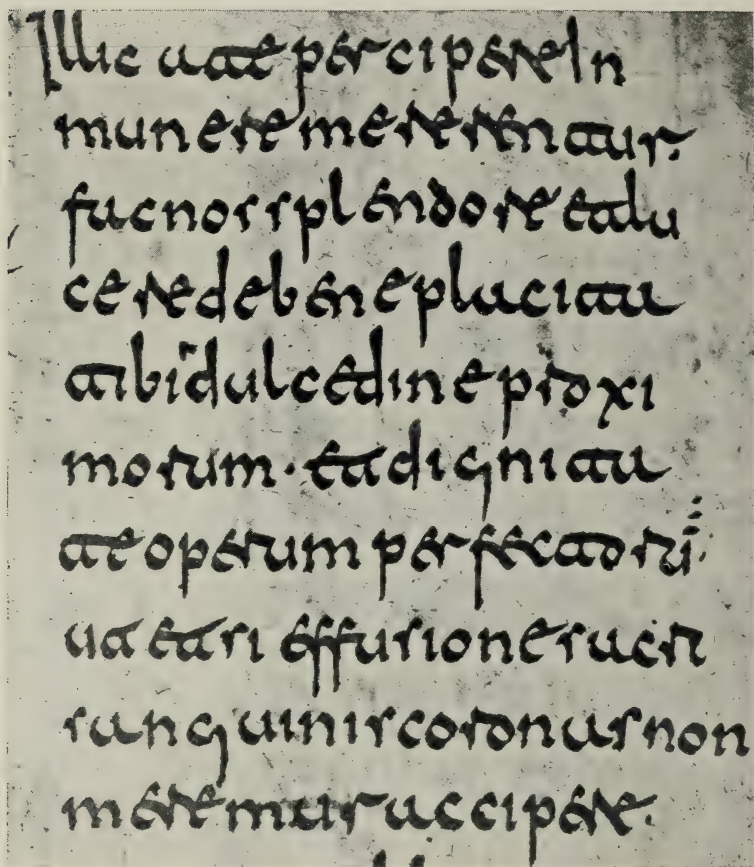 Illic ut te percipere In
munere mererentur.
fac nos splendore et lu
cere de beneplacita
tibi dulcedine proxi
morum · et dignita
te operum perfectorū.
ut etsi effusione sacri
sanguinis coronas non
meremur accipere.